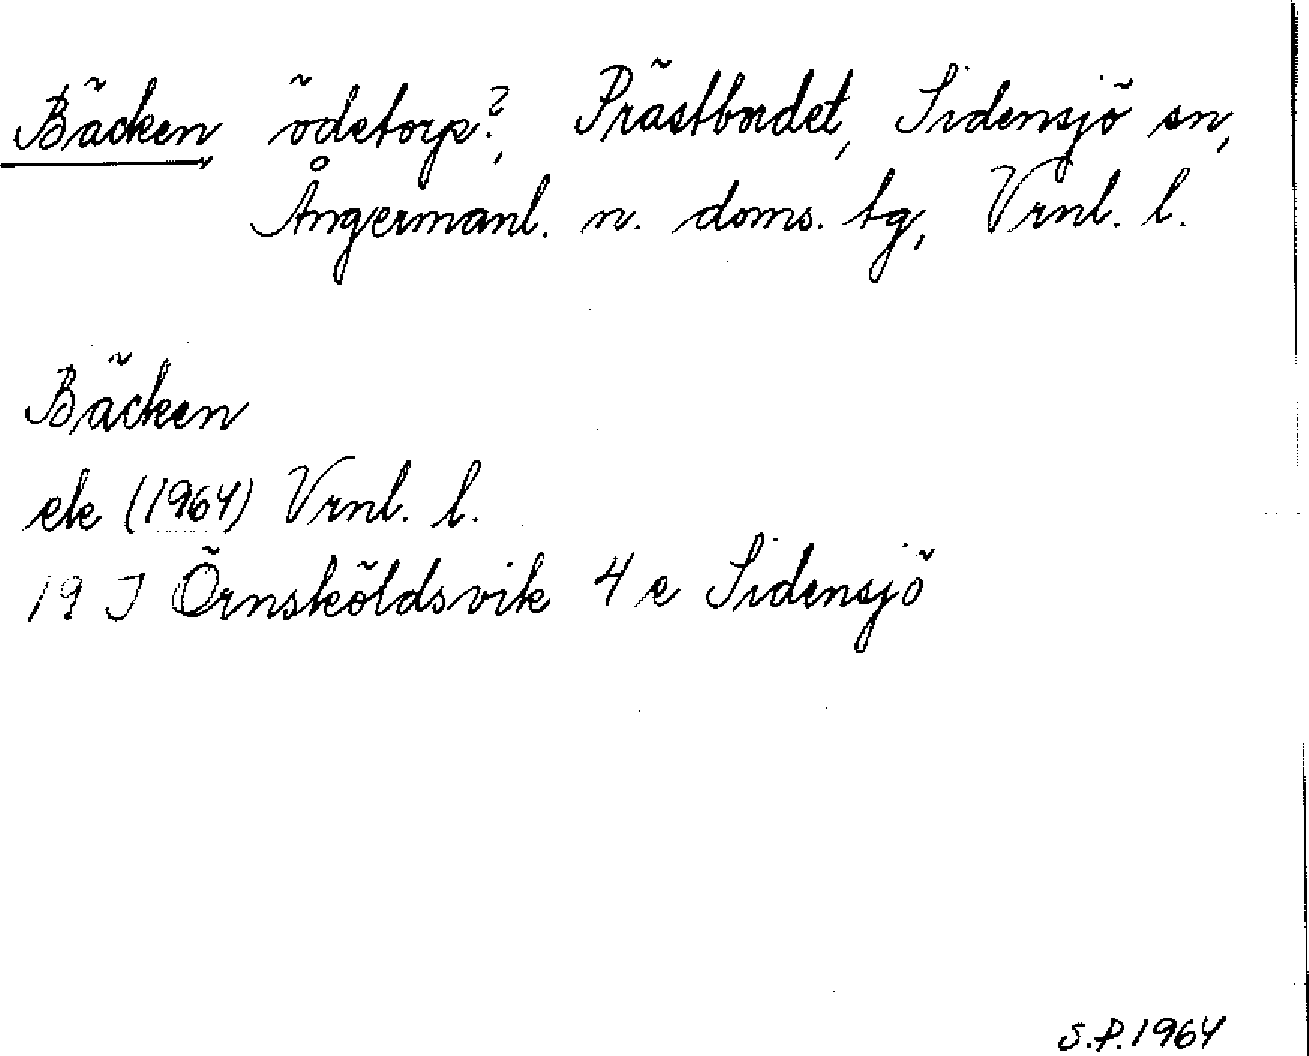 Bäcken, ödetorp?, Prästbordet, Sidensjö sn,
Ångermanl. n. doms. tg, Vrnl. l.
Bäcken
ek (1964) Vrnl. l.
19 J Örnsköldsvik 4 e Sidensjö
S.P.1964